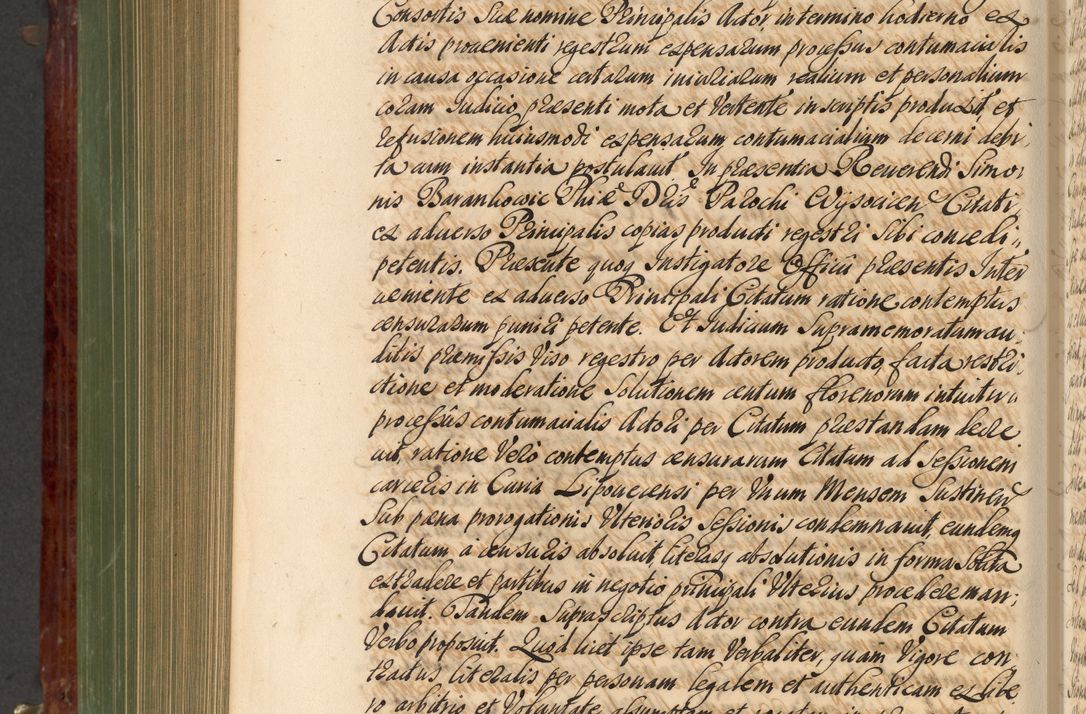 Consortis Suæ nomine Principalis Actor, in termino hodierno ex
Actis prouenienti regestrum expensarum processus contumacialis
in causa occasione certarum iniuriarum realium et personalium
coram Judicio præsenti mota et Vertente in scriptis produxit, et
refusionem huiusmodi expensarum contumacialium decerni debi,
ta cum instantia postulauit. In præsentia Reuerendi Simo
nis Barankowic Phiæ Dris Parochi Wysocicen Citati
ex aduerso Principalis copias producti regestri Sibi concedi,,
petentis. Præsente quoq Instigatore Officii præsentis Inter
ueniente ex aduerso Principali Citatum ratione contemptus
censurarum puniri petente. Et Judicium Supramemoratum au,
ditis præmissis Viso regestro per Actorem producto, facta restri,
ctione et moderatione Solutionem centum florenorum intuitu
processûs contumacialis Actori per Citatum præstandam decre
uit, ratione Verò contemptus censurarum Citatum ad Sessionem
carceris in Curia Lipouecensi per Vnum Mensem Sustinen
Sub pæna prorogationis Vlterioris Sessionis condemnauit, eundemq
Citatum a censuris absoluit, literasq absolutionis in forma Solita
extradere et partibus in negotio principali Vlterius procedere man,
dauit. Tandem Suprascriptus Actor contra eundem Citatum
Verbo proposuit. Quod licet ipse tam Verbaliter, quam Vigore con,
tractus literalis per personam legalem et authenticam ex libe
ro arbitrio et Voluntate